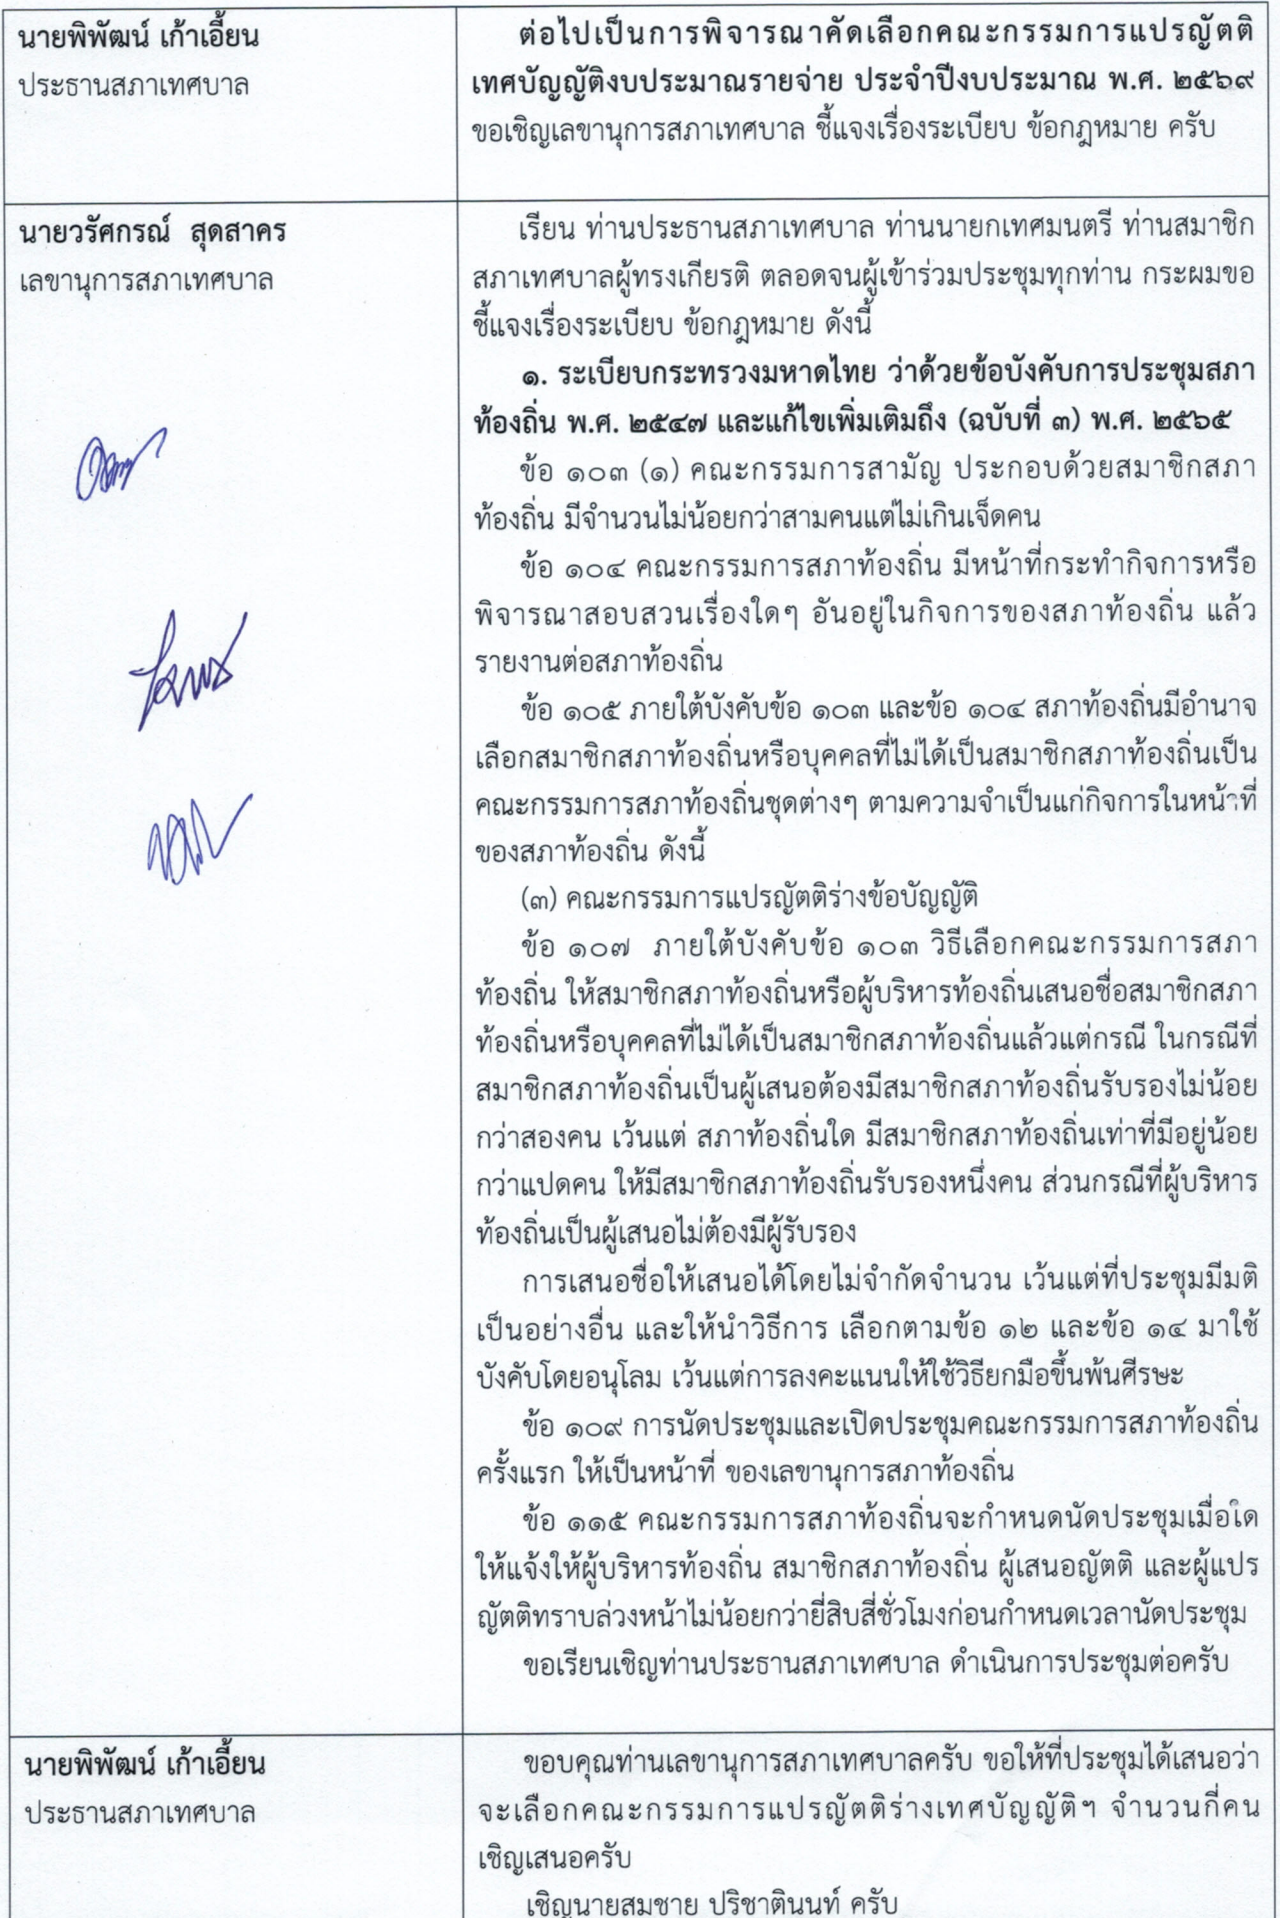 นายพิพัฒน์ เก้าเอี้ยน
ประธานสภาเทศบาล
ต่อไปเป็นการพิจารณาคัดเลือกคณะกรรมการแปรญัตติ
เทศบัญญัติงบประมาณรายจ่าย ประจำปีงบประมาณ พ.ศ. ๒๕๖๙
ขอเชิญเลขานุการสภาเทศบาล ชี้แจงเรื่องระเบียบ ข้อกฎหมาย ครับ
นายวรัศกรณ์ สุดสาคร
เลขานุการสภาเทศบาล
เรียน ท่านประธานสภาเทศบาล ท่านนายกเทศมนตรี ท่านสมาชิก
สภาเทศบาลผู้ทรงเกียรติ ตลอดจนผู้เข้าร่วมประชุมทุกท่าน กระผมขอ
ชี้แจงเรื่องระเบียบ ข้อกฎหมาย ดังนี้
๑. ระเบียบกระทรวงมหาดไทย ว่าด้วยข้อบังคับการประชุมสภา
ท้องถิ่น พ.ศ. ๒๕๔๗ และแก้ไขเพิ่มเติมถึง (ฉบับที่ ๓) พ.ศ. ๒๕๖๕
ข้อ ๑๐๓ (๑) คณะกรรมการสามัญ ประกอบด้วยสมาชิกสภา
ท้องถิ่น มีจำนวนไม่น้อยกว่าสามคนแต่ไม่เกินเจ็ดคน
ข้อ ๑๐๔ คณะกรรมการสภาท้องถิ่น มีหน้าที่กระทำกิจการหรือ
พิจารณาสอบสวนเรื่องใดๆ อันอยู่ในกิจการของสภาท้องถิ่น แล้ว
รายงานต่อสภาท้องถิ่น
ข้อ ๑๐๕ ภายใต้บังคับข้อ ๑๐๓ และข้อ ๑๐๔ สภาท้องถิ่นมีอำนาจ
เลือกสมาชิกสภาท้องถิ่นหรือบุคคลที่ไม่ได้เป็นสมาชิกสภาท้องถิ่นเป็น
คณะกรรมการสภาท้องถิ่นชุดต่างๆ ตามความจำเป็นแก่กิจการในหน้าที่
ของสภาท้องถิ่น ดังนี้
(๓) คณะกรรมการแปรญัตติร่างข้อบัญญัติ
ข้อ ๑๐๗ ภายใต้บังคับข้อ ๑๐๓ วิธีเลือกคณะกรรมการสภา
ท้องถิ่น ให้สมาชิกสภาท้องถิ่นหรือผู้บริหารท้องถิ่นเสนอชื่อสมาชิกสภา
ท้องถิ่นหรือบุคคลที่ไม่ได้เป็นสมาชิกสภาท้องถิ่นแล้วแต่กรณี ในกรณีที่
สมาชิกสภาท้องถิ่นเป็นผู้เสนอต้องมีสมาชิกสภาท้องถิ่นรับรองไม่น้อย
กว่าสองคน เว้นแต่ สภาท้องถิ่นใด มีสมาชิกสภาท้องถิ่นเท่าที่มีอยู่น้อย
กว่าแปดคน ให้มีสมาชิกสภาท้องถิ่นรับรองหนึ่งคน ส่วนกรณีที่ผู้บริหาร
ท้องถิ่นเป็นผู้เสนอไม่ต้องมีผู้รับรอง
การเสนอชื่อให้เสนอได้โดยไม่จำกัดจำนวน เว้นแต่ที่ประชุมมีมติ
เป็นอย่างอื่น และให้นำวิธีการ เลือกตามข้อ ๑๒ และข้อ ๑๔ มาใช้
บังคับโดยอนุโลม เว้นแต่การลงคะแนนให้ใช้วิธียกมือขึ้นพ้นศีรษะ
ข้อ ๑๐๙ การนัดประชุมและเปิดประชุมคณะกรรมการสภาท้องถิ่น
ครั้งแรก ให้เป็นหน้าที่ ของเลขานุการสภาท้องถิ่น
ข้อ ๑๑๕ คณะกรรมการสภาท้องถิ่นจะกำหนดนัดประชุมเมื่อใด
ให้แจ้งให้ผู้บริหารท้องถิ่น สมาชิกสภาท้องถิ่น ผู้เสนอญัตติ และผู้แปร
ญัตติทราบล่วงหน้าไม่น้อยกว่ายี่สิบสี่ชั่วโมงก่อนกำหนดเวลานัดประชุม
ขอเรียนเชิญท่านประธานสภาเทศบาล ดำเนินการประชุมต่อครับ
นายพิพัฒน์ เก้าเอี้ยน
ประธานสภาเทศบาล
ขอบคุณท่านเลขานุการสภาเทศบาลครับ ขอให้ที่ประชุมได้เสนอว่า
จะเลือกคณะกรรมการแปรญัตติร่างเทศบัญญัติฯ จำนวนกี่คน
เชิญเสนอครับ
เชิญนายสมชาย ปริชาตินนท์ ครับ